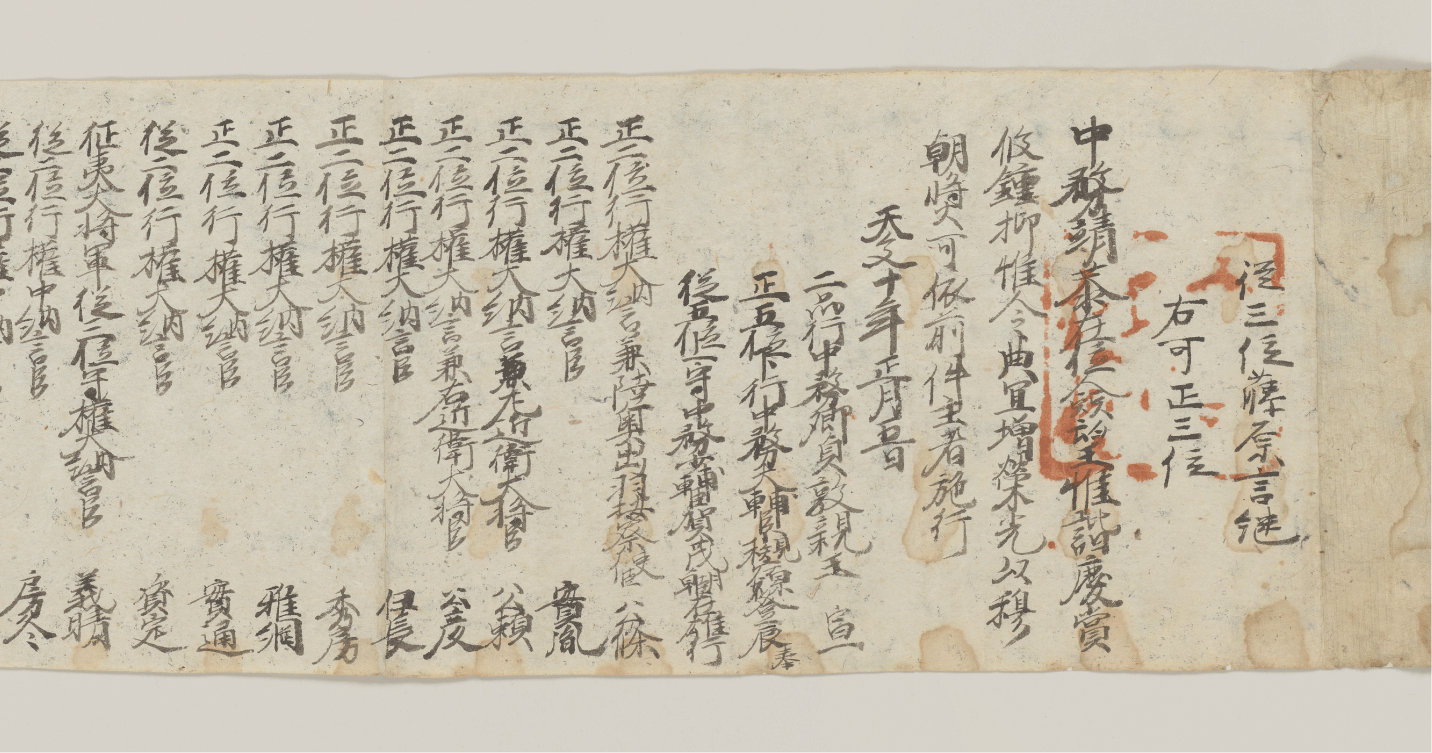 從三位藤原言継
右可正三位
中務靖恭在位令望惟諧慶賞
攸鍾抑惟令典宜增榮光以穆
朝獎可依前件主者施行
天文十年正月五日
二品行中務卿貞敦親王 宣
正五位下行中務大輔臣
奉
從五位下守中務少輔賀茂朝臣 行
正二位行權大納言兼陸奥出羽按察使臣 公條
正二位行權大納言臣 實胤
正二位行權大納言兼左近衛大將臣 公頼
正二位行權大納言兼右近衛大將臣 公彦
正二位行權大納言臣 伊長
正二位行權大納言臣 秀房
正二位行權大納言臣 雅綱
正二位行權大納言臣 實通
從二位行權大納言臣 資定
征夷大將軍從三位守權大納言臣 義晴
從二位行權中納言臣 房冬